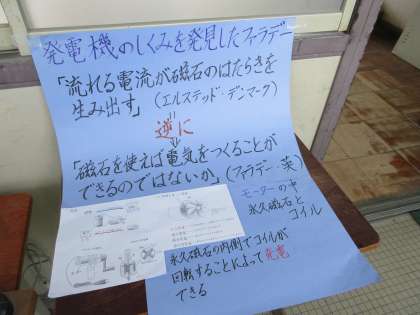 発電機のしくみを発見したファラデー
「流れる電流が磁石のはたらきを
生み出す」(エルステッド・デンマーク)
逆に
「磁石を使えば電気をつくることが
できるのではないか」(ファラデー・英)
モーターの中
永久磁石と
コイル
永久磁石の内側でコイルが
回転することによって発電
できる